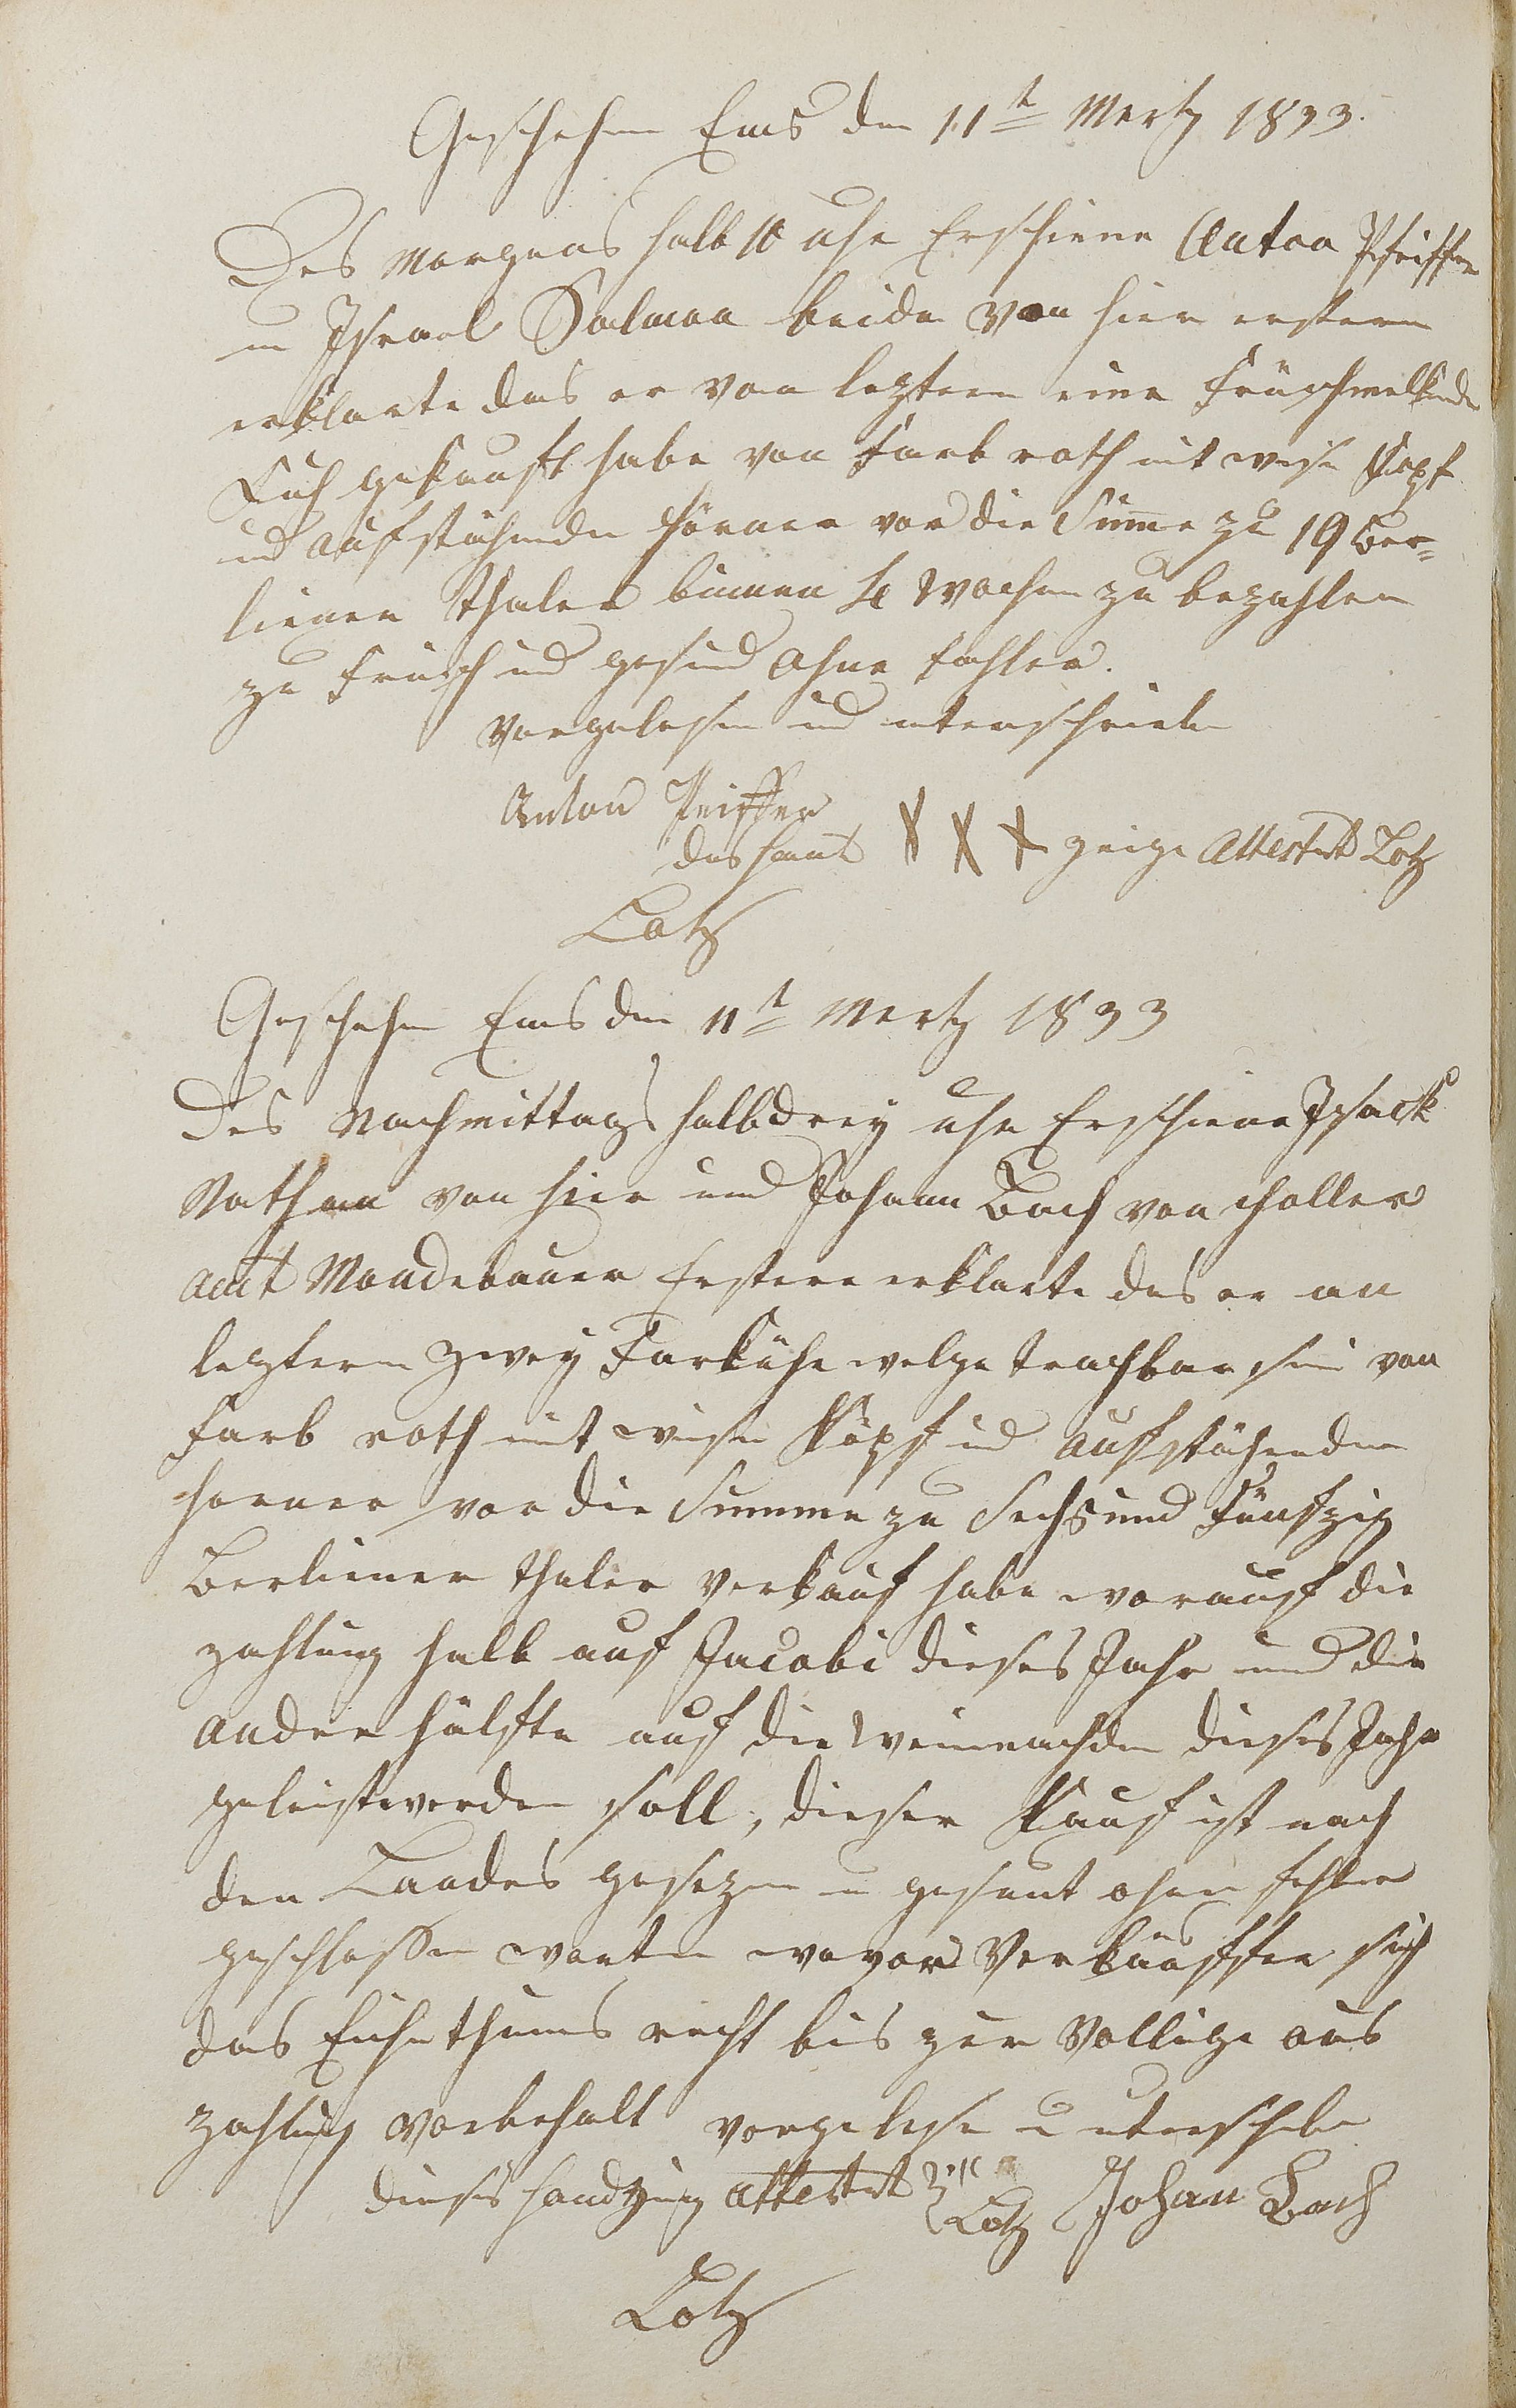 Geschehen Ems den 11t Mertz 1833.
Des Morgens halb 10 uhr Erschiene Anton Pfeiffer
u Israel Salman beide von hier erstern
erklarte das er von leztern eine frischmelkende
Kuh gekauft habe von Farb roth mit weise Kopf
und aufstähende Hörner vor die Sume zu 19 Ber=
liener Thaler binnen 4 Wochen zu bezahlen
zu frisch und gesund ohne fehler.
Vorgelesen und unterschrieben
Anton Peiffer
das Hant X X X zeige Attestirt Lotz
Lotz
Geschehen Ems den 11t Mertz 1833
Des Nachmittags halbdrey uhr Erschiene Isack
Nathan von hier und Johann Bach von Holler
Amt Mondebauer Erstere erklarte das er an
leztern zwey Farkühe welge trachbar sin von
Farb roth mit weise Köpf und aufstähenden
horner vor die Summe zu Sechs und Fünfzig
Berliener Thaler verkauf habe worauf die
zahlung halb auf Jacobi dieses Jahr und die
andere hälfte auf die Weinnachden dieses Jahr
geleist werden soll, dieser Kauf ist nach
den Landes gesezen u gesunt ohne fehler
geschlossen worten wovor Verkäuffer sich
das Eichethums recht bis zur Vollige aus
zahlung vorbehalt vorgelese u unterschrieben
dieses Handzeig Attestirt Lotz Johan Bach
Lotz